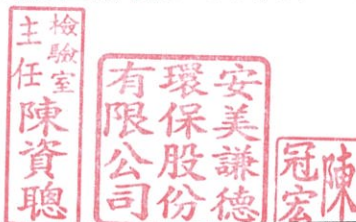 檢驗室
主任
陳資聰
安美謙德
環保股份
有限公司
陳
冠宏